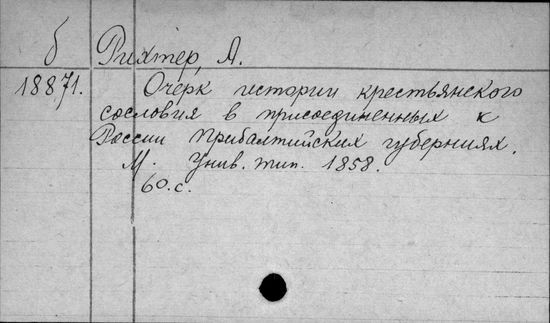 б Рихтер, А.
18871. Очерк истории крестьянского
сословия в присоединенных к
России прибалтийских губерниях.
М. Унив. тип. 1858.
60.с.